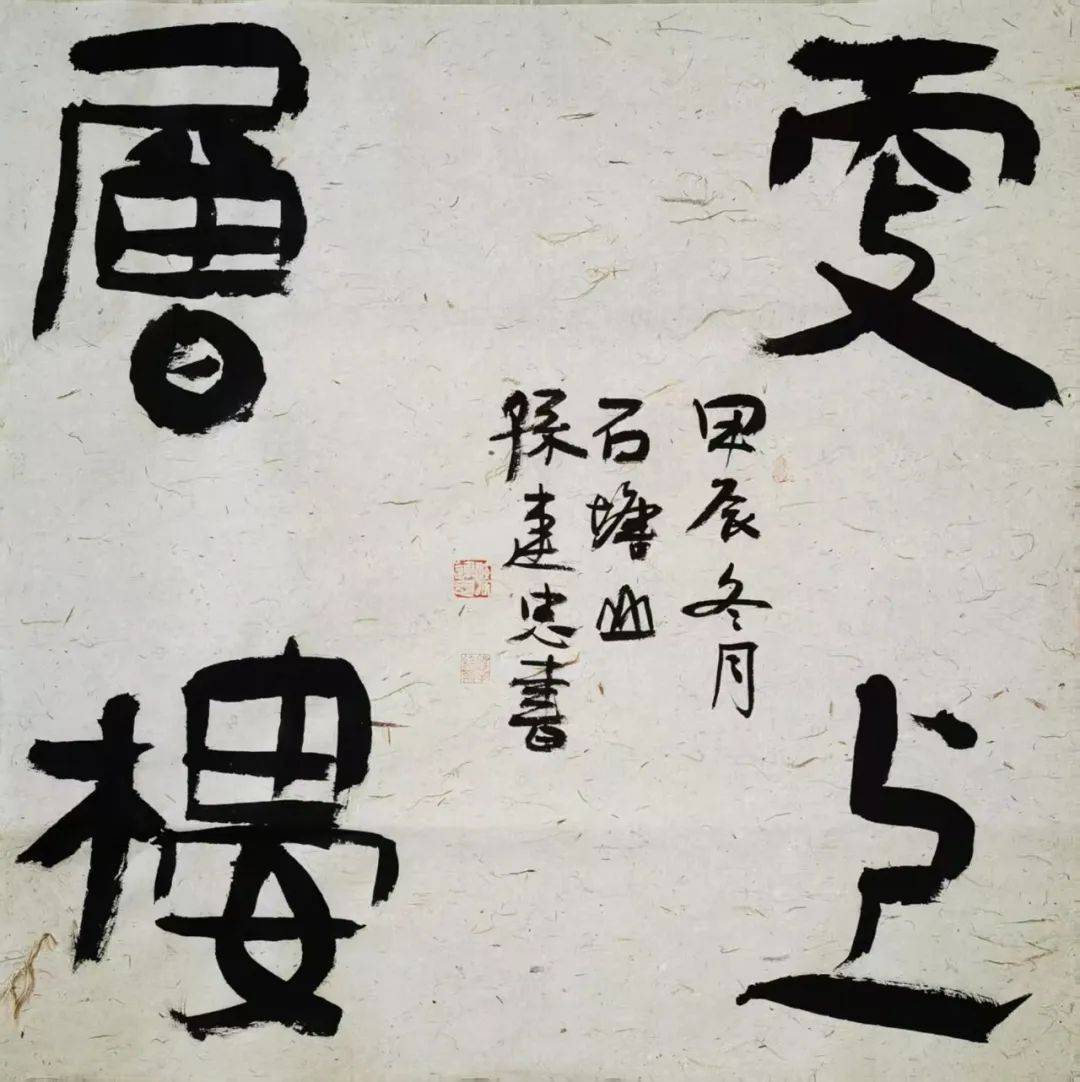 更上
層樓
甲辰冬月
石山
孫建忠書